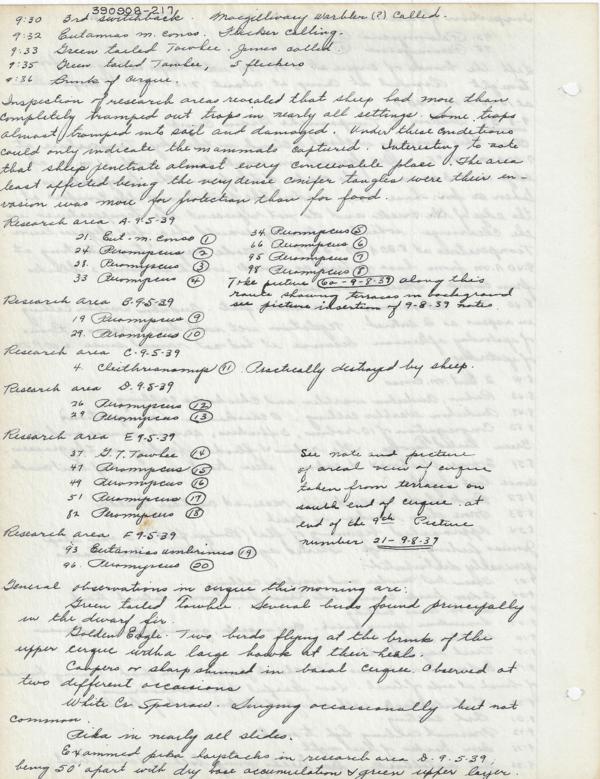 390908-217
9:30 3rd switchback. Macgillivary Warbler (?) called.
9:32 Eutamias m. conso. Flicker calling.
9:33 Green tailed Towhee. Juncos called.
9:35 Green tailed Towhee, 5 flickers
9:36 Brink of cirque.
Inspection of research areas revealed that sheep had more than
completely tramped out traps in nearly all settings. Some traps
almost tramped into soil and damaged. Under these conditions
could only indicate the mammals captured. Interesting to note
that sheep penetrate almost every conceivable place. The area
least affected being the very dense conifer tangles were their in-
vasion was more for protection than for food.
Research area A-9-5-39
21. Eut. m. conso 1
24 Peromyscus 2
28. Peromyscus 3
33 Peromyscus 4
34. Peromyscus 5
66 Peromyscus 6
95 Peromyscus 7
98 Peromyscus 8
Toke picture 60-9-8-39 along this
route showing terraces in background
see picture insertion of 9-8-39 notes.
Research area B-9-5-39
19 Peromyscus 9
29. Peromyscus 10
Research area C-9-5-39
4. Cleithrionomys 11. Practically destroyed by sheep.
Research area D-9-5-39
26 Peromyscus 12
29 Peromyscus 13
Research area E 9-5-39
37. G.T. Towhee 14
47 Peromyscus 15
49 Peromyscus 16
51 Peromyscus 17
82 Peromyscus 18
See note and picture
of areal view of cirque
taken from terraces on
south end of cirque at
end of the 9th Picture
number 21-9-8-39
Research area F 9-5-39
93 Eutamias umbrinus 19
96. Peromyscus 20
General observations in cirque this morning are:
Green tailed Towhee. Several birds found principally
in the dwarf fir.
Golden Eagle. Two birds flying at the brink of the
upper cirque with a large hawk at their heals.
Coopers or sharpshinned in basal cirque. Observed at
two different occassions
White Cr Sparrow. Singing occaissionally but not
common.
Pika in nearly all slides.
Examined pika haystacks in research area D-9-5-39,
being 50' apart with dry base accumulation & green upper layer